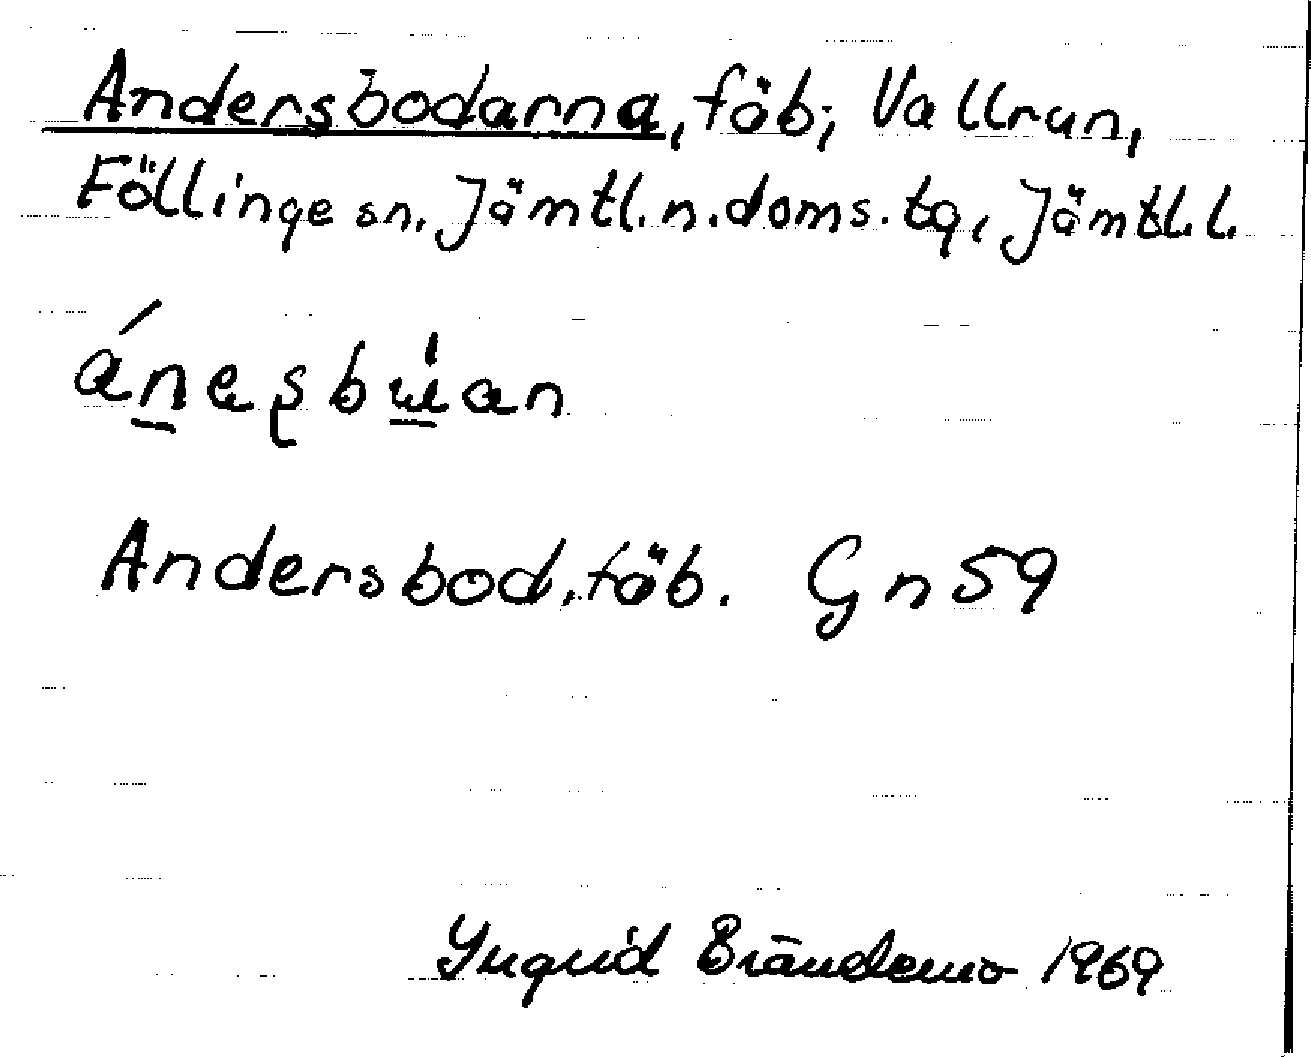 Andersbodarna, fäb; Vallrun,
Föllinge sn. Jämtl. n. doms. tg, Jämtl. l.
Andersbod, fäb. Gn 59
Ingrid Brändemo 1969